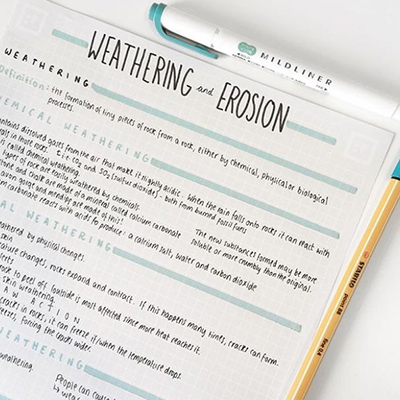 WEATHERING and EROSION
MILDLINER
WEATHERING
Definition: the formation of tiny pieces of rock from a rock, either by chemical, physical or biological
processes.
HEMICAL WEATHERING
ontains dissolved gases from the air that make it slightly acidic. When the rain falls onto rocks it can react with
erals in those rocks. CO2 and SO2 (sulfur dioxide) - both from burned fossil fuels
is called chemical weathering.
types of rock are easily weathered by chemicals.
stone and chalk are made of a mineral called calcium carbonate
gorge and are made of this!
m carbonate reacts with acid to produce: a calcium salt, water and carbon dioxide
The new substances formed may be more
soluble or more crumbly than the original.
AL WEATHERING
eathered by physical changes
skin
ature changes, rocks expand and contract. If this happens many times, cracks can form.
rock to peel off (outside is most affected since more heat reaches it.
skin weathering.
AW ACTION
cracks in rocks, it can freeze if/when the temperature drops.
eezes, forcing the cracks wider.
WEATHERING
weathering.
People can cause
STABILO
point 88
fine 0.4